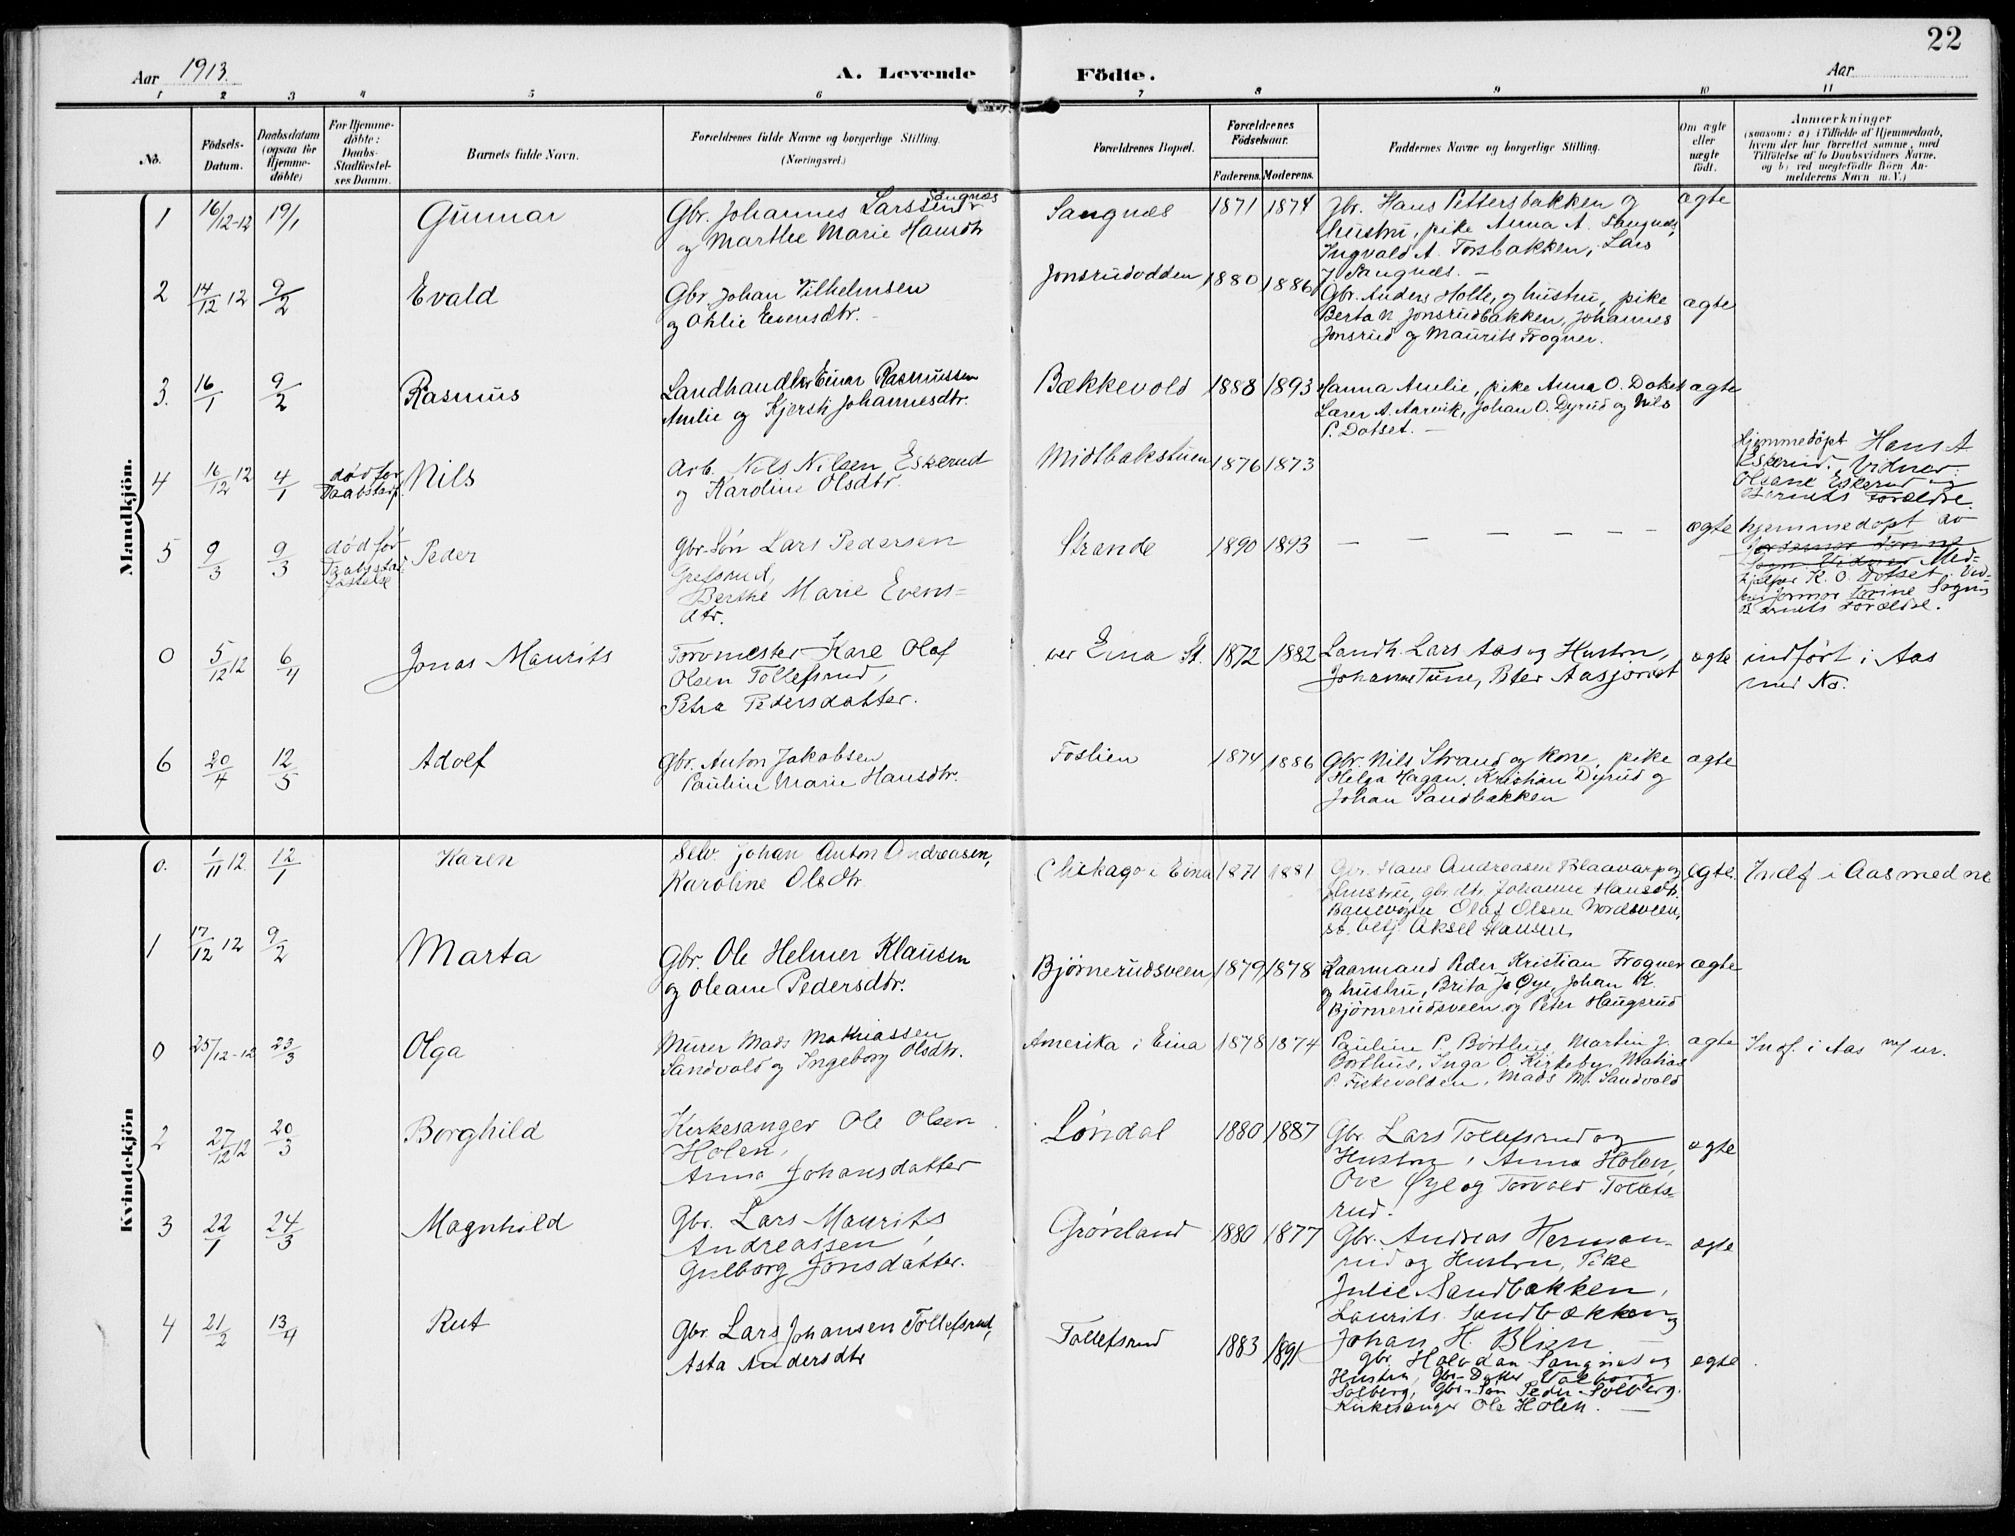 22
Aar 1913.
A. Levende Födte.
Aar
1 2 3 4 5 6 7 8 9 10 11
No.
Födsels-
Datum.
Daabsdatum
(ogsaa for
Hjemme-
döbte)
For Hjemme-
döbte:
Daabs-
Stadfæstel-
ses Datum.
Barnets fulde Navn.
Forældrenes fulde Navne og borgerlige Stilling.
(Næringsvei.)
Forældrenes Bopæl.
Forældrenes
Födselsaar.
Faderens. Moderens.
Faddernes Navne og borgerlige Stilling.
Om ægte
eller
uægte
födt.
Anmærkninger
(saasom: a) i Tilfælde af Hjemmedaab,
hvem der har forrettet samme, med
Tilföielse af to Daabsvidners Navne.
og b) ved uægtefödte Börn An-
melderens Navn m. V.)
Mandkjön.
1 16/12-12 19/1 Gunnar
Gbr. Johannes Larssen Sangnæs
og Marthe Marie Hansdtr
Sangnæs 1871 1874
Gbr. Hans Pettersbakken og
hustru, pike Anna A. Sangnæs,
Ingvald A. Torsbakken, Lars
J. Sangnæs. —
ægte
2 14/12 12 9/2 Evald
Gbr. Johan Vilhelmsen
og Ohlie Evensdtr. -
Jonsrudodden 1880 1886
Gbr. Anders Holte, og hustru, pike
Berta N. Jonsrudbakken, Johannes
Jonsrud og Maurits Frogner.
ægte
3. 16/1 9/2 Rasmus
Landhandler Einar Rasmussen
Amlie og Kjersti Johannesdtr.
Bækkevold 1888 1893
Hanna Amlie, pike Anna O. Dotset
Lærer A. Aarvik, Johan O. Dyrud og Nils
P. Dotset. —
ægte
4 16/12 12 4/1 død før
Daabstadf. Nils
Arb. Nils Nilsen Eskerud
og Karoline Olsdtr.
Midtbakstuen 1876 1873
Hjemmedöpt Hans A
Eskerud. Vidner:
Olsane Eskerud og
Barnets Forældre.
5 9/3 9/3 død før
Daabstad-
fæstelse Peder
Gbr-Søn Lars Pedersen
Grefsrud,
Berthe Marie Evens=
dtr.
Strande 1890 1893
— — — — — —
ægte
hjemmedøpt av
Jordemor Torine
Sogn Vidner Med-
hjelper K. O. Dotset. Vid-
ner Jormor Torine Sogn
Barnets Forældre.
0 5/12 12 6/4 Jonas Maurits
Torvmester Kare Olaf
Olsen Tollefsrud,
Petra Pedersdatter.
ver Eina St. 1872 1882
Landh. Lars Aas og Hustru,
Johanne Tune, Peter Aasjordet
ægte
indført i Aas
med No.
6 20/4 12/5 Adolf
Gbr. Anton Jakobsen
Pauline Marie Hansdtr.
Foslien 1874 1886
Gbr. Nils Strand og kone, pike
Helga Hagan, Kristian Dyrud og
Johan Sandbakken
ægte
Kvindekjön
0. 1/11 12 12/1 Karen
Selv. Johan Anton Andreasen,
Karoline Olsdtr.
Chikago i Eina 1871 1881
Gbr. Hans Andreasen Blaavarp og
hustru, gbr dtr. Johanne Hansdtr.
Banevogter Olaf Olsen Nordsveen,
st. betj Aksel Hansen.
ægte.
Indf i Aas med nr
1 17/12 12 9/2 Marta
Gbr. Ole Helmer Klausen
og Oleane Pedersdtr.
Bjørnerudsveen 1879 1878
Laarmand Peder Kristian Frogner
og hustru, Brita J. Øye, Johan K.
Bjørnerudsveen og Peter Haugsrud
ægte
0 25/12-12 23/3 Olga
Murer Mads Mathiassen
Sandvold og Ingeborg Olsdtr.
Amerika i Eina 1878 1874
Pauline P. Børthus, Martin J.
Borthus, Inga O. Kirkeby, Matias
P. Fiskevolden, Mads M. Sandvold
ægte
Indf. i Aas m/ nr.
2 27/12 12 20/3 Borghild
Kirkesanger Ole Olsen
Holen,
Anna Johansdatter
Løndal 1880 1887
Gbr. Lars Tollefsrud og
Hustru, Anna Holen,
Ove Øye og Torvald Tollefs-
rud.
ægte
3 22/1 24/3 Magnhild
Gbr. Lars Maurits
Andreassen,
Gulborg Jonsdatter.
Grønland 1880 1877
Gbr. Andreas Herman-
rud og Hustru, Pike
Julie Sandbakken,
Laurits Sandbakken og
Johan H. Blien —
ægte
4 21/2 13/4 Rut
Gbr. Lars Johansen Tollefsrud,
Asta Andersdtr
Tollefsrud 1883 1891
Gbr. Halvdan Sangnæs og
Hustru, Gbr-Datter Valborg
Solberg, Gbr-Søn Peder Solberg.
Kirkesanger Ole Holen. —
ægte